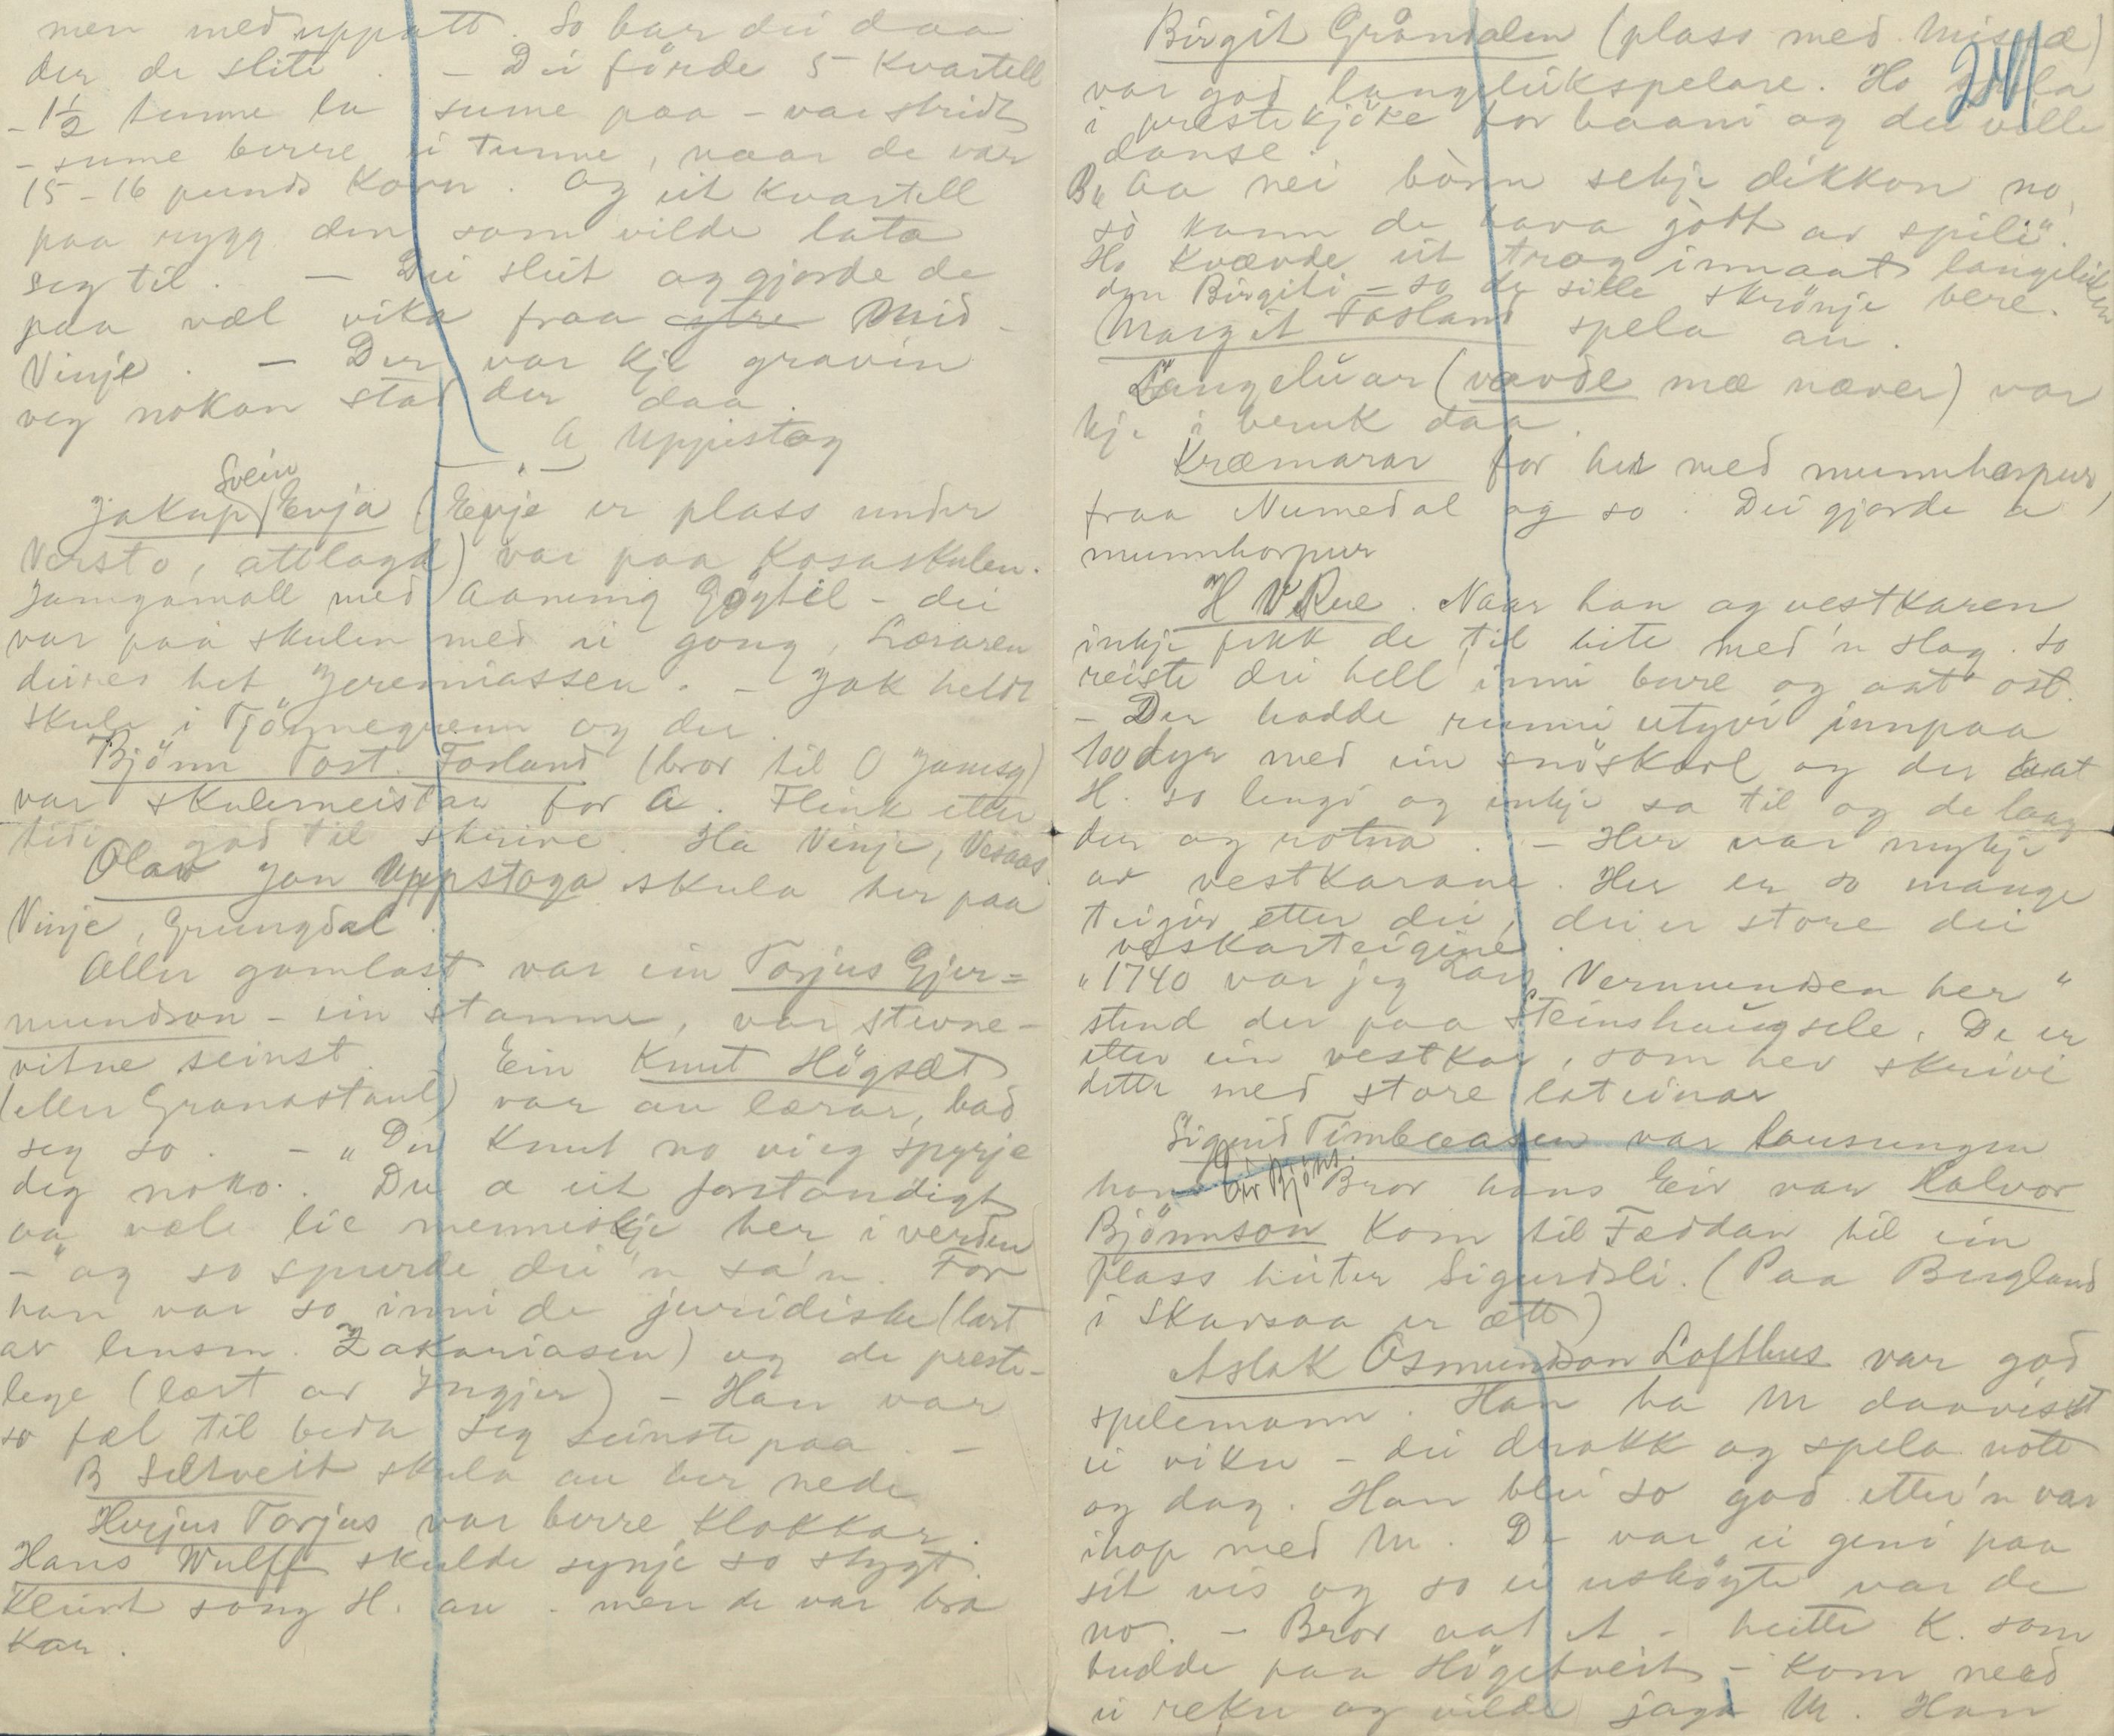 men med uppatt. So bar dei daa
der de slite. - Dei förde 5 Kvartell
- 1½ tunne la sume paa - var stridt
- sume berre ei tunne, naar de var
15-16 punds Korn. Og eit Kvartell
paa rygg den som vilde lata
seg til. - Dei sleit og gjorde de
paa væl vika fraa Mid-
Vinje. - Der var kje gravin
veg nokan stad der daa.
A Uppistog
Svein
Jakup Evja (Evje er plass under
Versto, attlagd) var paa Kosaskulen.
Jamgamall med Aanung Gøytil - dei
var paa skulen med ei gong, Læraren
deires het "Jeremiassen". - Jak heldt
skule i Tjönnegrenn og der.
Björn Tost. Fosland (bror til O Jamsg)
var skulemeistar for A. Flink etter
tidi god til skrive. Ha Vinje, Vesaas.
Olav Jon Uppstoga skula her paa
Vinje, Grungdal.
Aller gamlast var ein Torjus Gjer=
mundson - ein stamme, var stevne-
vitne seinst. Ein Knut Högsæt
(eller Granastaul) var au lærar, bad
seg so. - "Du Knut no vi eg spyrje
deg noko. Du a eit forstandigt
og væle lie menneskje her i verden
-" og so spurde dei 'n sa'n. For
han var so inni de juridiske (lært
av lensm. Zakariasen) og de preste-
lege (lært av Yngjer) - Han var
so fæl til beda seg seinste paa. -
B Seltveit skula au her nede
Herjus Torjus var berre klokkar.
Hans Wulff skulde synje so stygt.
Kleint song H. au - men de var bra
Kar.
241
Birgit Gråndalen (plass med Misvæ)
var god langleikspelare. Ho spela
i prestekjöke for baani og dei ville
danse.
B "Aa nei bòrn setje dikkon no,
so kann de hava gòtt av spili".
Ho kvævde eit trog innaat langeleiken
den Birgiti - so de sille skrönje bere.
Margit Fosland spela au.
Langelùar (vavde mæ næver) var
kje i bruk daa.
Kræmarar for her med munnharpur,
fraa Numedal og so. Dei gjorde a
munnharpur
H V Rue. Naar han og vestkaren
inkje fekk de til bite med 'n slag. so
reiste dei hell inni bure og aat ost.
- Der hadde runni utyvi innpaa
100 dyr med ein snöskavl og der laat
H. so lengi og inkje sa til og de laag
der og rotna. - Her var mykje
av vestkarane. Her er so mange
teigjir etter dei, dei er store dei
vesskarteigine.
"1740 var jeg Lars Vermundsen her"
stend der paa Steinshaugsele. De er
etter ein vestkar, som hev skrivi
dette med store latinar
Sigurd Timbræasen var lausungen
hans Eiv Björns. Bror hans Eiv var Halvor
Björnnson kom til Fæddan til ein
plass heiter Sigurdsli. (Paa Bergland
i Skarsaa er ætt)
Aslak Osmundson Lofthus var god
spelemann. Han ha M daavisst
ei viku - dei drakk og spela nott
og dag. Han blei so god etter'n var
ihop med M. De var ei geni paa
sit vis og so ei uskøyte var de
no. - Bror aat A - heitte K. som
budde paa Högetveit - kom need
ei reku og vilde jaga M. Han